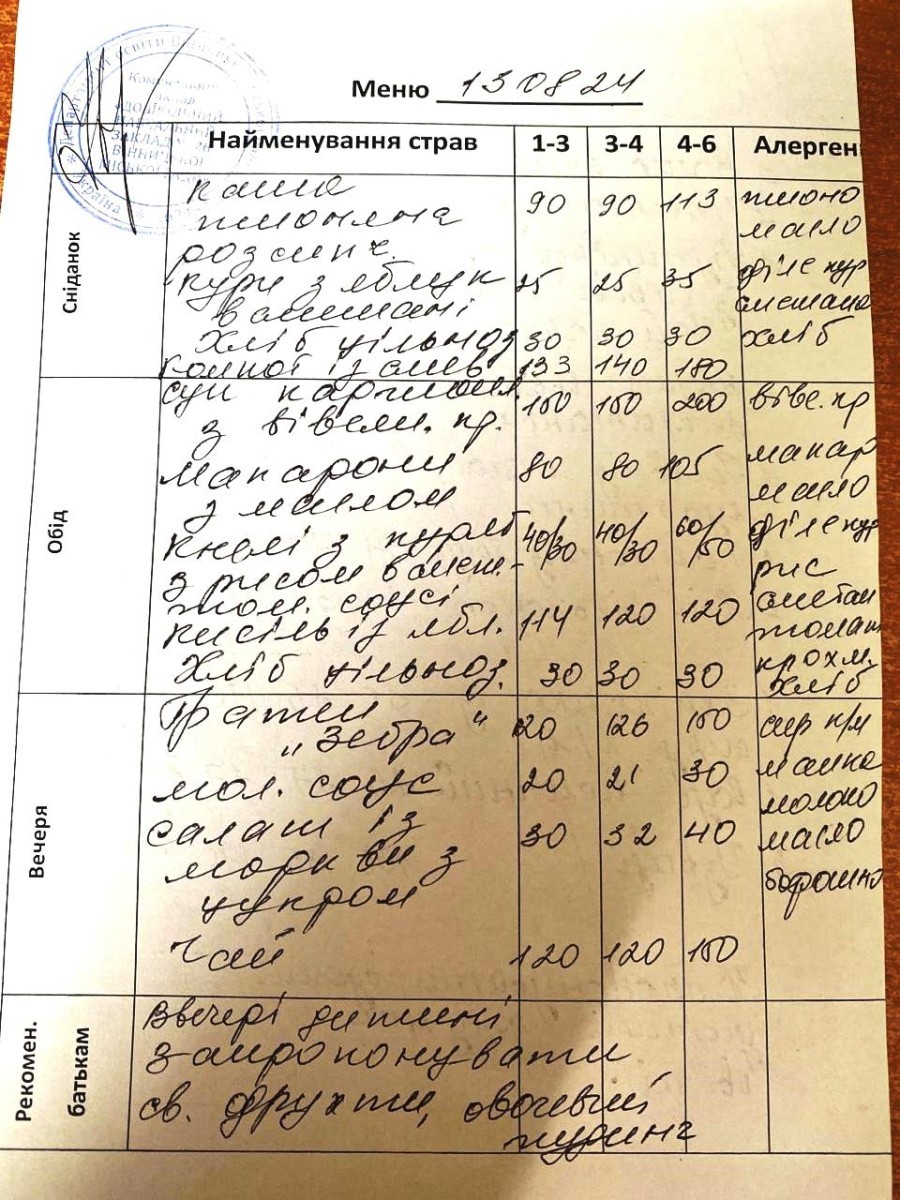 Меню 130824
Найменування страв 1-3 3-4 4-6 Алерген
Сніданок
каша
пшоняна 90 90 113 пшоно
розсипч. масло
кури з яблук 25 25 35 філе кур
в сметані сметана
Хліб цільноз 30 30 30 хліб
компот із слив 133 140 180
Обід
суп картопл. 150 150 200 вівс. кр
з вівсян. кр.
макарони 80 80 105 макар
з маслом масло
кнелі з курят 40/30 40/30 60/50 філе кур
з рисом в смет.- рис
том. соусі сметан
кисіль із ябл. 114 120 120 томат
крохм.
Хліб цільноз. 30 30 30 хліб
Вечеря
Гратен 120 126 150 сир к/м
"Зебра"
мол. соус 20 21 30 манка
молоко
салат із 30 32 40 масло
моркви з борошно
цукром
Чай 120 120 150
Рекомен.
батькам
Ввечері дитині
запропонувати
св. фрукти, овочевий
пудинг